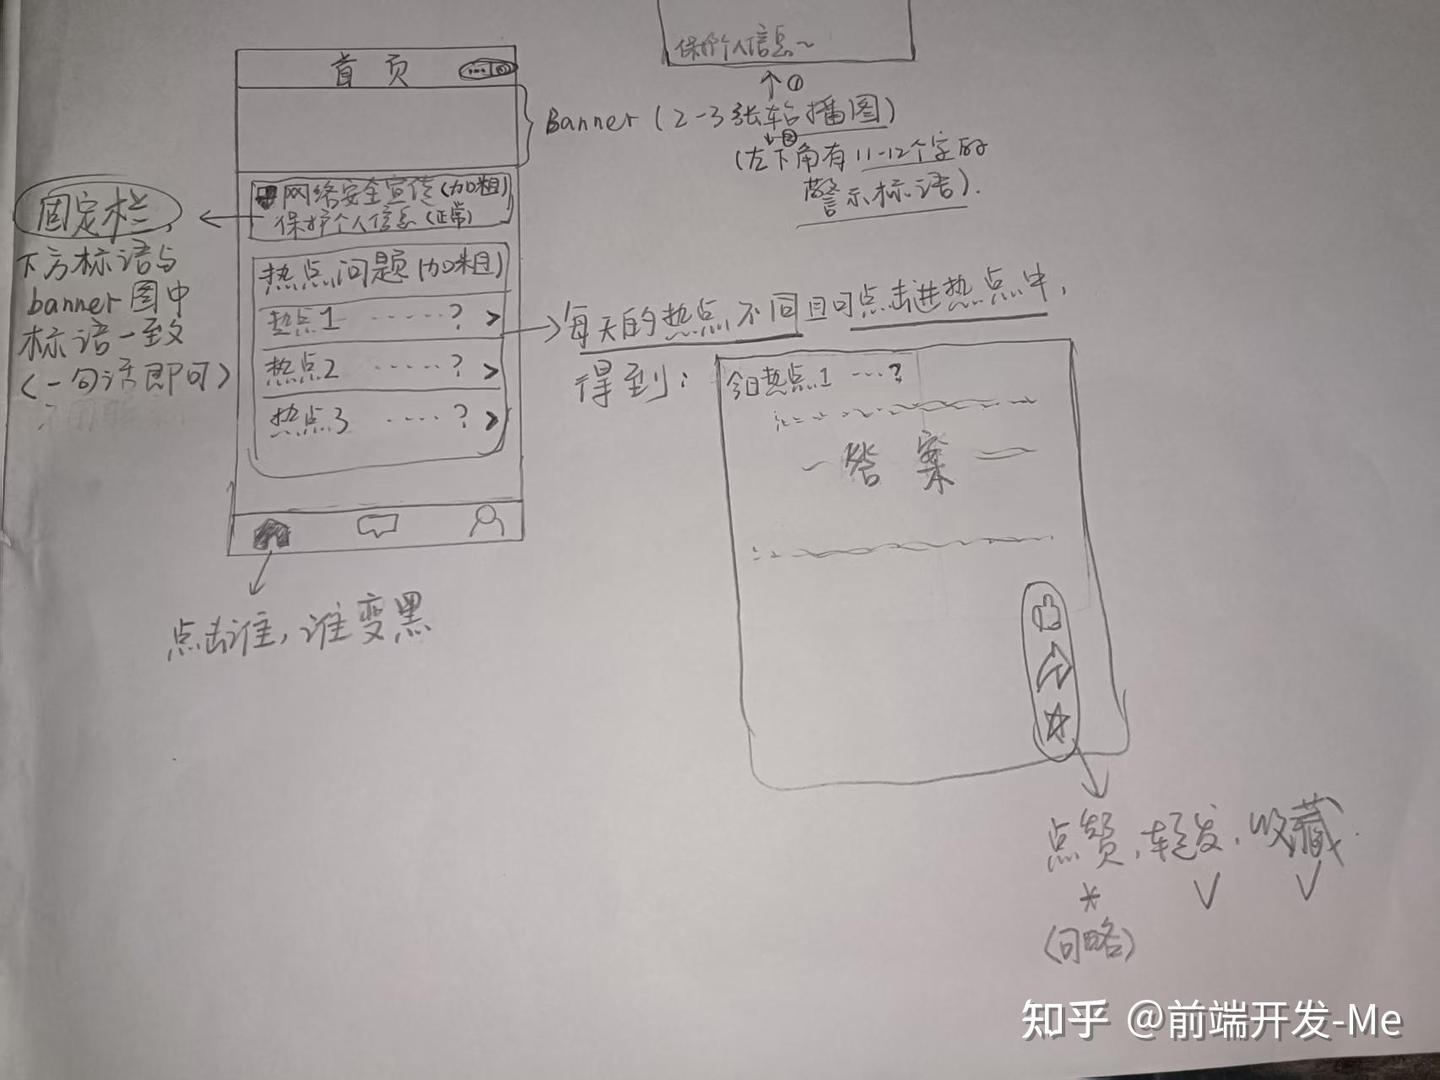 保护个人信息~
首页
①
Banner(2-3张轮播图)
②
(左下角有11-12个字的
警示标语).
网络安全宣传(加粗)
保护个人信息(正常)
固定栏,
下方标语与
banner图中
标语一致
(一句话即可)
热点问题(加粗)
热点1 ······? >
热点2 ······? >
热点3 ·····? >
每天的热点不同且可点击进热点中,
得到:
今日热点1 ···?
答案
点击谁,谁变黑
点赞,转发,收藏.
(可略)
知乎 @前端开发-Me